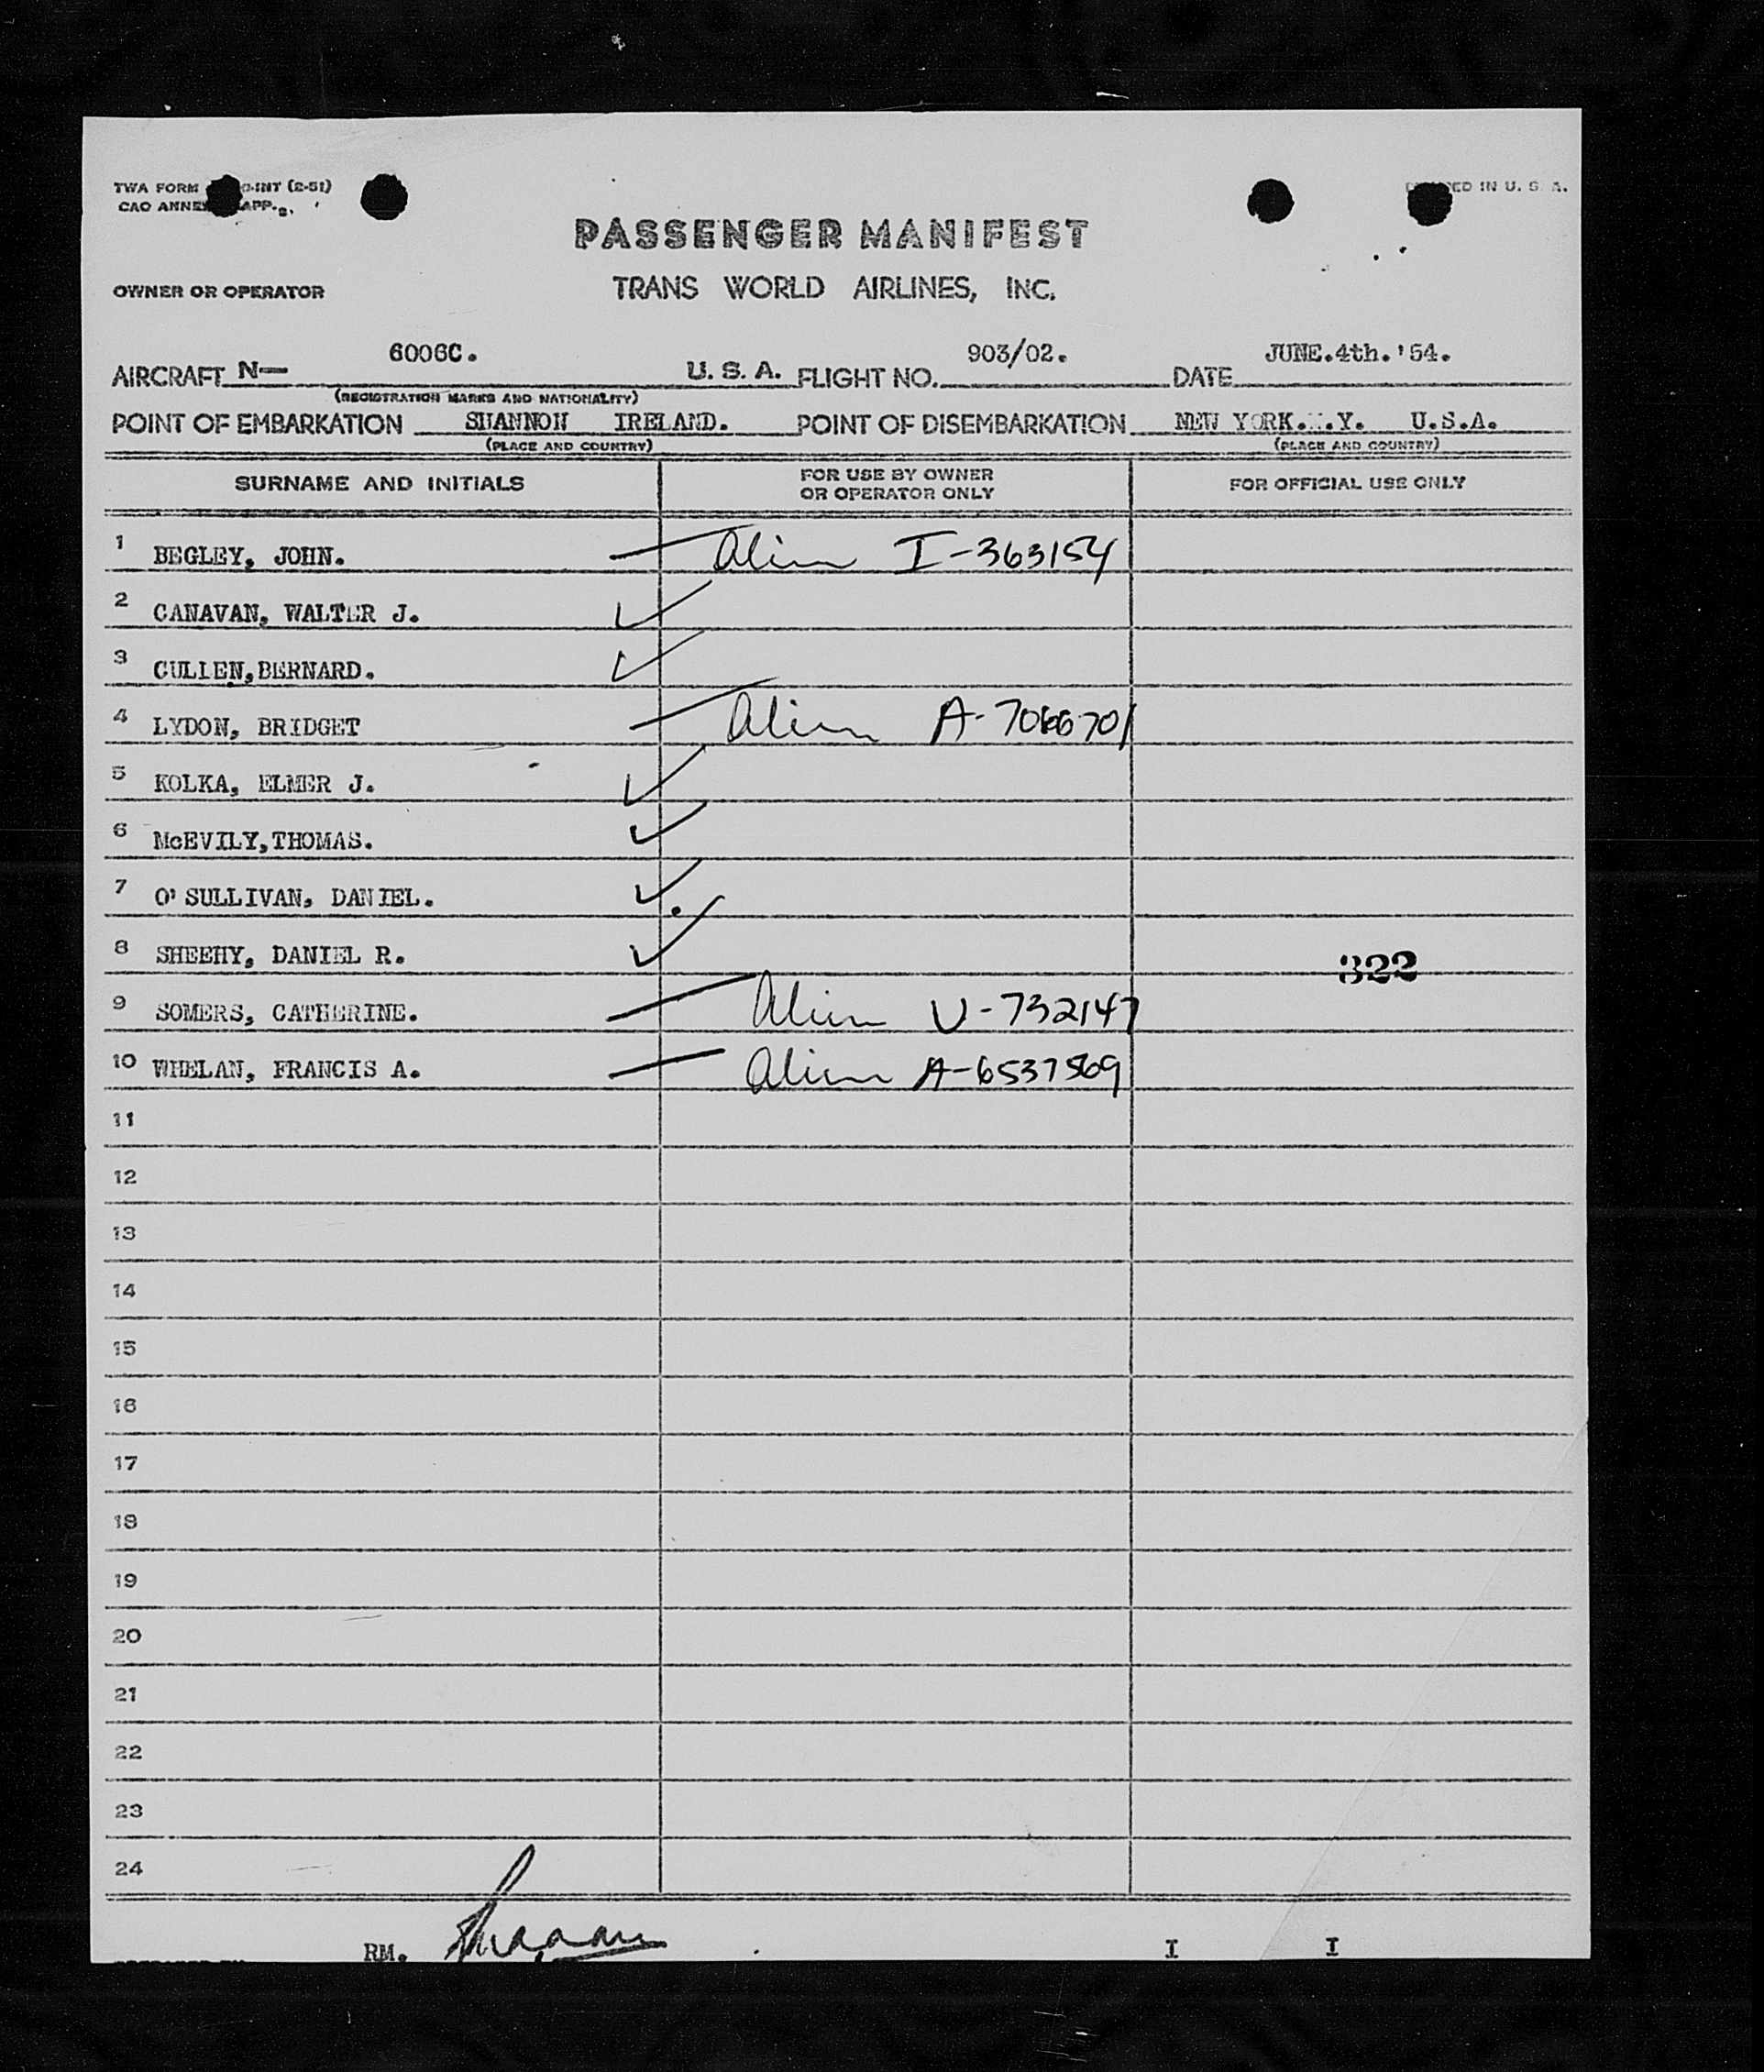 TWA FORM O-INT (2-51)
CAO ANNEX APP. ED IN U. S. A.
PASSENGER MANIFEST
OWNER OR OPERATOR TRANS WORLD AIRLINES, INC.
6006C. 903/02. JUNE.4th.'54.
AIRCRAFT N— U. S. A. FLIGHT NO. DATE
(REGISTRATION MARKS AND NATIONALITY)
POINT OF EMBARKATION SHANNON IRELAND. POINT OF DISEMBARKATION NEW YORK. .Y. U.S.A.
(PLACE AND COUNTRY) (PLACE AND COUNTRY)
SURNAME AND INITIALS FOR USE BY OWNER OR OPERATOR ONLY FOR OFFICIAL USE ONLY
1 BEGLEY, JOHN. — Alien I-363154
2 CANAVAN, WALTER J. ✓
3 CULLEN,BERNARD. ✓
4 LYDON, BRIDGET — Alien A-7066701
5 KOLKA, ELMER J. ✓
6 McEVILY,THOMAS. ✓
7 O'SULLIVAN, DANIEL. ✓
8 SHEEHY, DANIEL R. ✓ 322
9 SOMERS, CATHERINE. — Alien V-732147
10 WHELAN, FRANCIS A. — Alien A-6537569
11
12
13
14
15
16
17
18
19
20
21
22
23
24
RM. I I